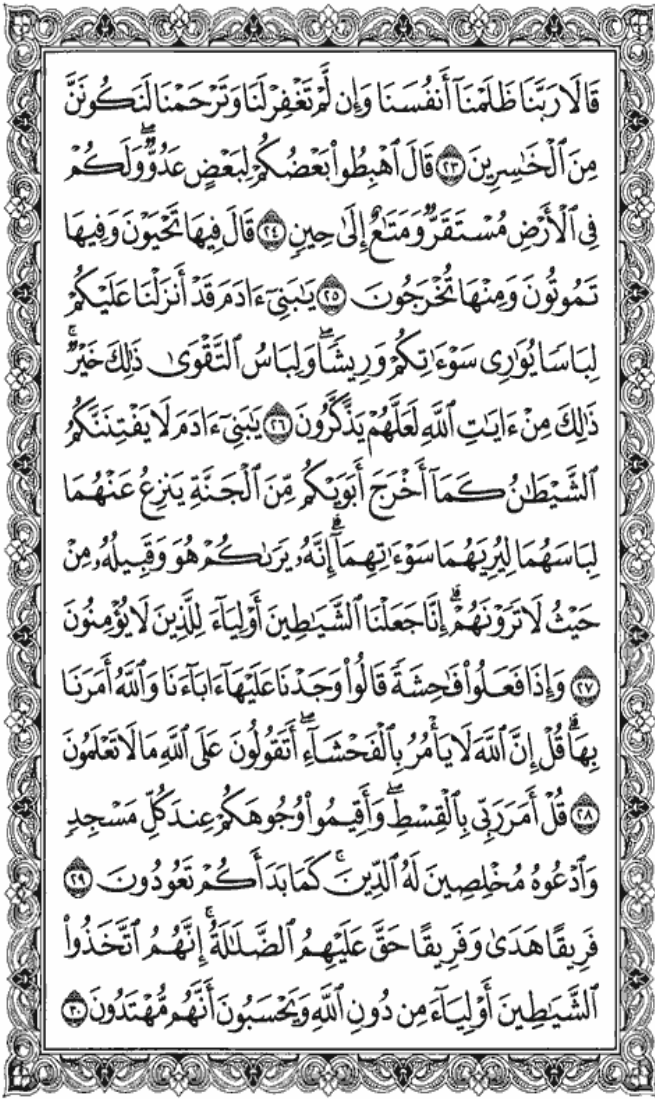 قَالَا رَبَّنَا ظَلَمْنَآ أَنفُسَنَا وَإِن لَّمْ تَغْفِرْ لَنَا وَتَرْحَمْنَا لَنَكُونَنَّ
مِنَ ٱلْخَٰسِرِينَ ٢٣ قَالَ ٱهْبِطُوا۟ بَعْضُكُمْ لِبَعْضٍ عَدُوٌّ ۖ وَلَكُمْ
فِى ٱلْأَرْضِ مُسْتَقَرٌّ وَمَتَٰعٌ إِلَىٰ حِينٍ ٢٤ قَالَ فِيهَا تَحْيَوْنَ وَفِيهَا
تَمُوتُونَ وَمِنْهَا تُخْرَجُونَ ٢٥ يَٰبَنِىٓ ءَادَمَ قَدْ أَنزَلْنَا عَلَيْكُمْ
لِبَاسًا يُوَٰرِى سَوْءَٰتِكُمْ وَرِيشًا ۖ وَلِبَاسُ ٱلتَّقْوَىٰ ذَٰلِكَ خَيْرٌ ۚ
ذَٰلِكَ مِنْ ءَايَٰتِ ٱللَّهِ لَعَلَّهُمْ يَذَّكَّرُونَ ٢٦ يَٰبَنِىٓ ءَادَمَ لَا يَفْتِنَنَّكُمُ
ٱلشَّيْطَٰنُ كَمَآ أَخْرَجَ أَبَوَيْكُم مِّنَ ٱلْجَنَّةِ يَنزِعُ عَنْهُمَا
لِبَاسَهُمَا لِيُرِيَهُمَا سَوْءَٰتِهِمَآ ۗ إِنَّهُۥ يَرَىٰكُمْ هُوَ وَقَبِيلُهُۥ مِنْ
حَيْثُ لَا تَرَوْنَهُمْ ۗ إِنَّا جَعَلْنَا ٱلشَّيَٰطِينَ أَوْلِيَآءَ لِلَّذِينَ لَا يُؤْمِنُونَ
٢٧ وَإِذَا فَعَلُوا۟ فَٰحِشَةً قَالُوا۟ وَجَدْنَا عَلَيْهَآ ءَابَآءَنَا وَٱللَّهُ أَمَرَنَا
بِهَا ۗ قُلْ إِنَّ ٱللَّهَ لَا يَأْمُرُ بِٱلْفَحْشَآءِ ۖ أَتَقُولُونَ عَلَى ٱللَّهِ مَا لَا تَعْلَمُونَ
٢٨ قُلْ أَمَرَ رَبِّى بِٱلْقِسْطِ ۖ وَأَقِيمُوا۟ وُجُوهَكُمْ عِندَ كُلِّ مَسْجِدٍ
وَٱدْعُوهُ مُخْلِصِينَ لَهُ ٱلدِّينَ ۚ كَمَا بَدَأَكُمْ تَعُودُونَ ٢٩
فَرِيقًا هَدَىٰ وَفَرِيقًا حَقَّ عَلَيْهِمُ ٱلضَّلَٰلَةُ ۗ إِنَّهُمُ ٱتَّخَذُوا۟
ٱلشَّيَٰطِينَ أَوْلِيَآءَ مِن دُونِ ٱللَّهِ وَيَحْسَبُونَ أَنَّهُم مُّهْتَدُونَ ٣٠